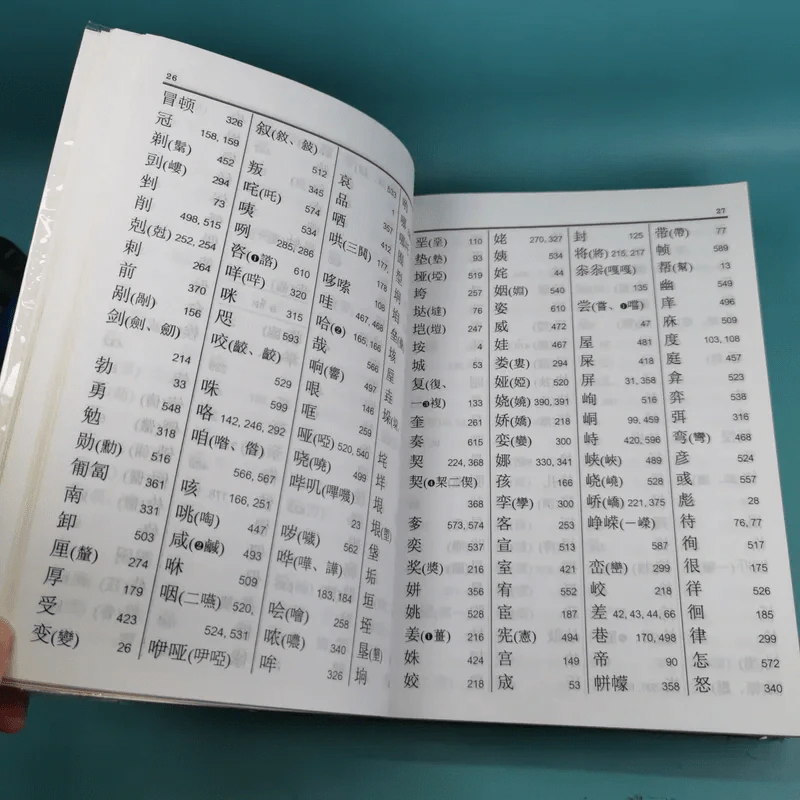 26
冒顿 326
冠 158, 159
剃(鬀) 452
剅(嵝) 294
剉 73
削 498, 515
剋(尅) 252, 254
剌 264
前 370
剐(剮) 156
剑(劍、劒) 214
勃 33
勇 548
勉 318
勋(勳) 516
匍匐 361
南 331
卸 503
厘(釐) 274
厚 179
受 423
变(變) 26
叙(敘、敍) 512
叛 345
咤(吒) 574
咦 534
咧 285, 286
咨(❶諮) 610
咩(哶) 320
咪 315
咫 593
咬(齩、鹼)
咮 599
咯 142, 246, 292
咱(喒、偺) 566, 567
咳 166, 251
咷(啕) 447
咸(❷鹹) 493
咻 509
咽(二嚥) 520, 524, 531
咿哑(吚啞)
哀 1
品 357
哂 412
哄(三鬨) 177, 178
哆嗦
哇 467, 468
哈(❷) 165, 166
哉 566
响(響) 497
哏 146
哐 259
哑(啞) 520, 540
哓(嘵) 499
哔叽(嗶嘰) 23
哕(噦) 562
哗(嘩、譁) 183, 184
哙(噲) 258
哝(噥) 340
哞 326
27
垩(堊) 110
垫(墊) 93
垭(埡) 519
垮 257
垯(墶) 76
垲(塏) 247
垵 4
城 53
复(復、
一❸複) 133
奎 261
奏 615
契 224, 368
契(❹挈二偰) 368
奓 573, 574
奕 537
奖(獎) 216
姘 356
姚 528
姜(❶薑) 216
姝 424
姣 218
姥 270, 327
姨 534
姹 44
姻(婣) 540
姿 610
威 472
娃 467
娄(婁) 294
娅(婭) 520
娆(嬈) 390, 391
娇(嬌) 218
娈(孌) 300
娜 330, 341
孩 166
孪(孿) 300
客 253
宣 513
室 421
宥 552
宦 187
宪(憲) 494
宫 149
宬 53
封 125
将(將) 215, 217
尜尜(嘎嘎)
尝(嘗、❶嚐)
屋 481
屎 418
屏 31, 358
峋 516
峒 99, 459
峙 420, 596
峡(峽) 489
峣(嶢) 528
峤(嶠) 221, 375
峥嵘(一嶸) 587
峦(巒) 299
峧 218
差 42, 43, 44, 66
巷 170, 498
帝 90
帡幪 358
带(帶) 77
帧 589
帮(幫) 13
幽 549
庠 496
庥 509
度 103, 108
庭 457
弇 523
弈 538
弭 316
弯(彎) 468
彦 524
彧 557
彪 28
待 76, 77
徇 517
很 175
徉 526
徊 185
律 299
怎 572
怒 340